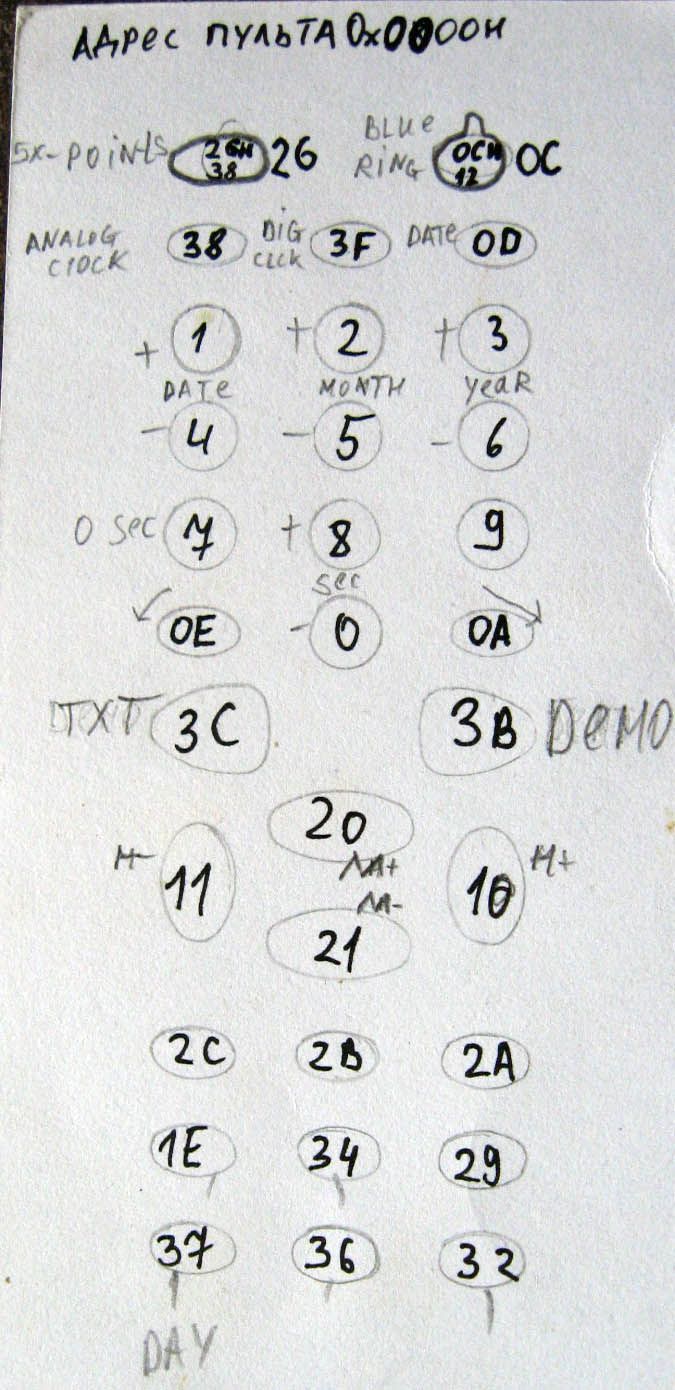 АДРЕС ПУЛЬТА 0x0000H
5X-POINTS 26H 38 26 BLUE RING 0CH 12 0C
ANALOG CLOCK 38 DIG CLCK 3F DATE 0D
+ 1 + 2 + 3
DATE MONTH YEAR
- 4 - 5 - 6
0 SEC 7 + 8 9
SEC
0E - 0 0A
TXT 3C 3B DEMO
20
M- 11 ЛА+ 10 M+
ЛА-
21
2C 2B 2A
1E 34 29
37 36 32
DAY